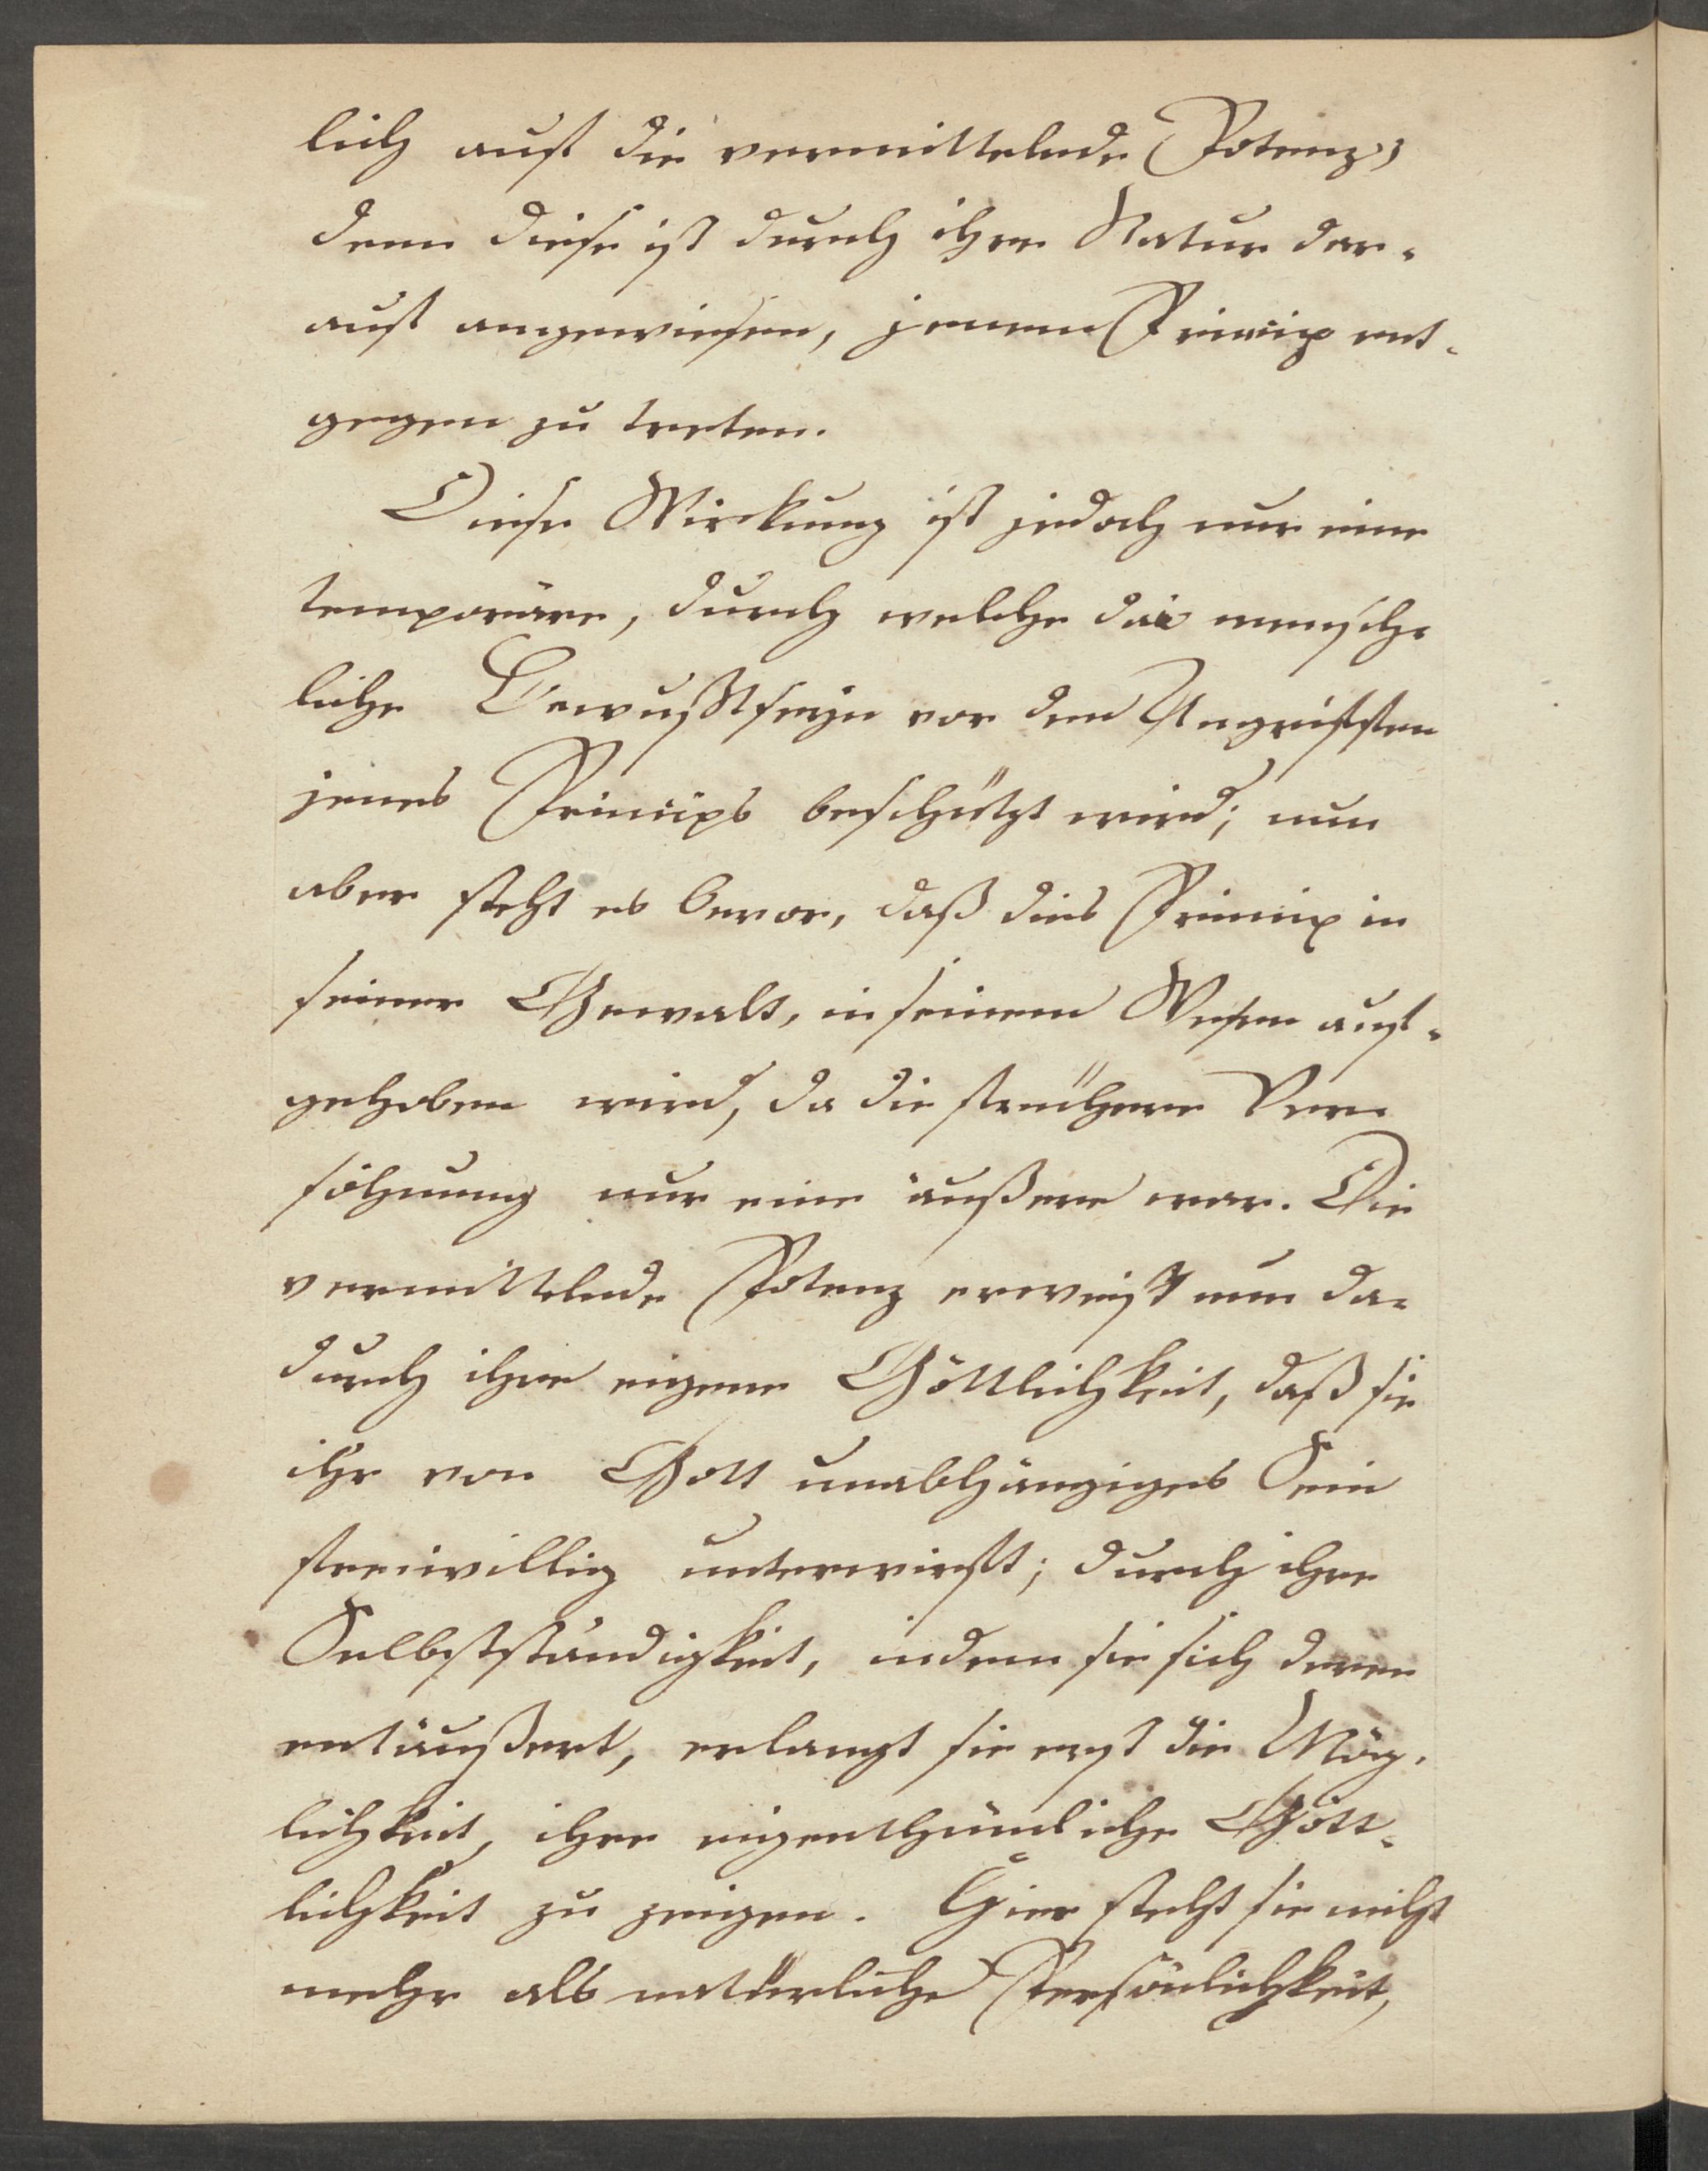 lich auf die vermittelnde Potenz,
denn diese ist durch ihre Natur dar-
auf angewiesen, jenem Princip ent-
gegen zu treten.
Diese Wirkung ist jedoch nur eine
temporäre, durch welche das mensch-
liche Bewußtseyn vor den Angriffen
jenes Princips beschützt wird; nun
aber steht es bevor, daß dies Princip in
seiner Gewalt, in seinem Wesen auf-
gehoben wird, da die frühere Ver-
söhnung nur eine äußere war. Die
vermittelnde Potenz erweist nun da-
durch ihre eigene Göttlichkeit, daß sie
ihr von Gott unabhängiges Sein
freiwillig unterwirft; durch ihre
Selbstständigkeit, indem sie sich deren
entäußert, erlangt sie erst die Mög-
lichkeit, ihre eigenthümliche Gött-
lichkeit zu zeigen. Hier steht sie nicht
mehr als natürliche Persönlichkeit,